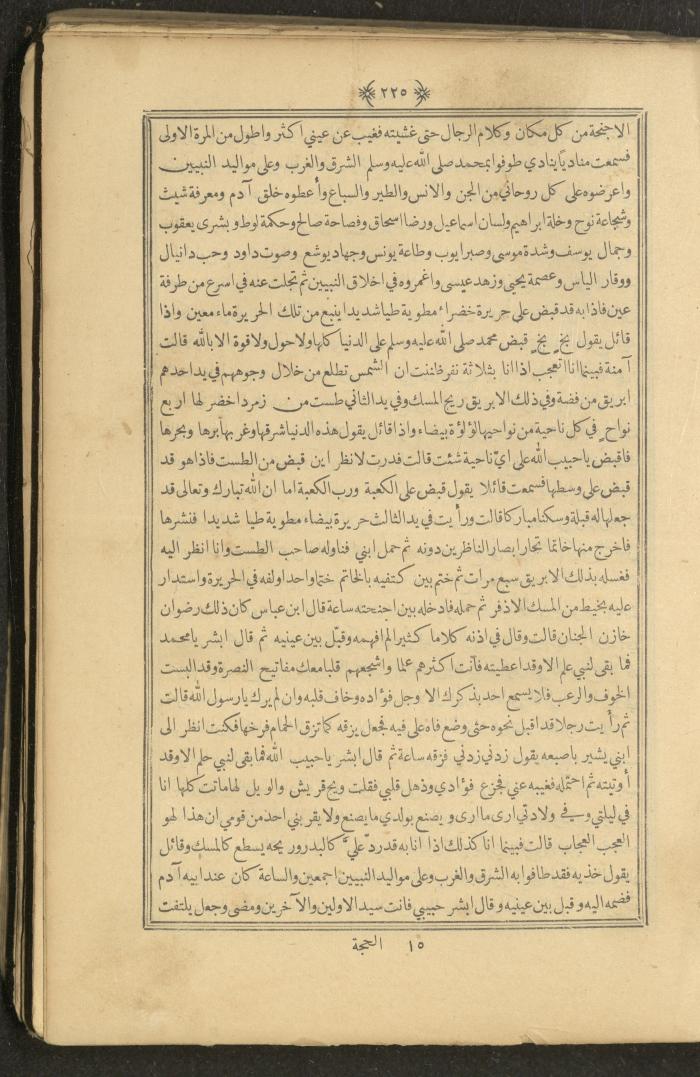 ٢٢٥
الاجنحة من كل مكان وكلام الرجال حتى غشيته فغيب عن عيني اكثر واطول من المرة الاولى
فسمعت مناديا ينادي طوفوا بمحمد صلى الله عليه وسلم الشرق والغرب وعلى مواليد النبيين
واعرضوه على كل روحاني من الجن والانس والطير والسباع وأعطوه خلق آدم ومعرفة شيث
وشجاعة نوح وخلة ابراهيم ولسان اسماعيل ورضا اسحاق وفصاحة صالح وحكمة لوط وبشرى يعقوب
وجمال يوسف وشدة موسى وصبر ايوب وطاعة يونس وجهاد يوشع وصوت داود وحب دانيال
ووقار الياس وعصمة يحيى وزهد عيسى واغمروه في اخلاق النبيين ثم تجلت عنه في اسرع من طرفة
عين فاذا به قد قبض على حريرة خضراء مطوية طيا شديدا ينبع من تلك الحريرة ماء معين واذا
قائل يقول بخ بخ قبض محمد صلى الله عليه وسلم على الدنيا كلها ولا حول ولا قوة الا بالله قالت
آمنة فبينما انا اتعجب اذا انا بثلاثة نفر ظننت ان الشمس تطلع من خلال وجوههم في يد احدهم
ابريق من فضة وفي ذلك الابريق ريح المسك وفي يد الثاني طست من زمرد اخضر لها اربع
نواح في كل ناحية من نواحيها لؤلؤة بيضاء واذا قائل يقول هذه الدنيا شرقها وغربها برها وبحرها
فاقبض يا حبيب الله على اي ناحية شئت قالت فدرت لانظر اين قبض من الطست فاذا هو قد
قبض على وسطها فسمعت قائلا يقول قبض على الكعبة ورب الكعبة اما ان الله تبارك وتعالى قد
جعلها له قبلة وسكنا مباركا قالت ورأيت في يد الثالث حريرة بيضاء مطوية طيا شديدا فنشرها
فاخرج منها خاتما تحار ابصار الناظرين دونه ثم حمل ابني فناوله صاحب الطست وانا انظر اليه
فغسله بذلك الابريق سبع مرات ثم ختم بين كتفيه بالخاتم ختما واحدا ولفه في الحريرة واستدار
عليه بخيط من المسك الاذفر ثم حمله فادخله بين اجنحته ساعة قال ابن عباس كان ذلك رضوان
خازن الجنان قالت وقال في اذنه كلاما كثيرا لم افهمه وقبّل بين عينيه ثم قال ابشر يا محمد
فما بقى لنبي علم الا وقد اعطيته فأنت اكثرهم علما واشجعهم قلبا معك مفاتيح النصرة وقد البست
الخوف والرعب فلا يسمع احد بذكرك الا وجل فؤاده وخاف قلبه وان لم يرك يا رسول الله قالت
ثم رأيت رجلا قد اقبل نحوه حتى وضع فاه على فيه فجعل يزقه كما تزق الحمام فرخها فكنت انظر الى
ابني يشير باصبعه يقول زدني زدني فزقه ساعة ثم قال ابشر يا حبيب الله فما بقى لنبي حلم الا وقد
أوتيته ثم احتمله فغيبه عني فجزع فؤادي وذهل قلبي فقلت ويح قريش والويل لها ماتت كلها انا
في ليلتي وفي ولادتي ارى ما ارى ويصنع بولدي ما يصنع ولا يقربني احد من قومي ان هذا لهو
العجب العجاب قالت فبينما انا كذلك اذا انا به قد ردّ عليّ كالبدر وريحه يسطع كالمسك وقائل
يقول خذيه فقد طافوا به الشرق والغرب وعلى مواليد النبيين اجمعين والساعة كان عند ابيه آدم
فضمه اليه وقبل بين عينيه وقال ابشر حبيبي فانت سيد الاولين والآخرين ومضى وجعل يلتفت
١٥ الحجة